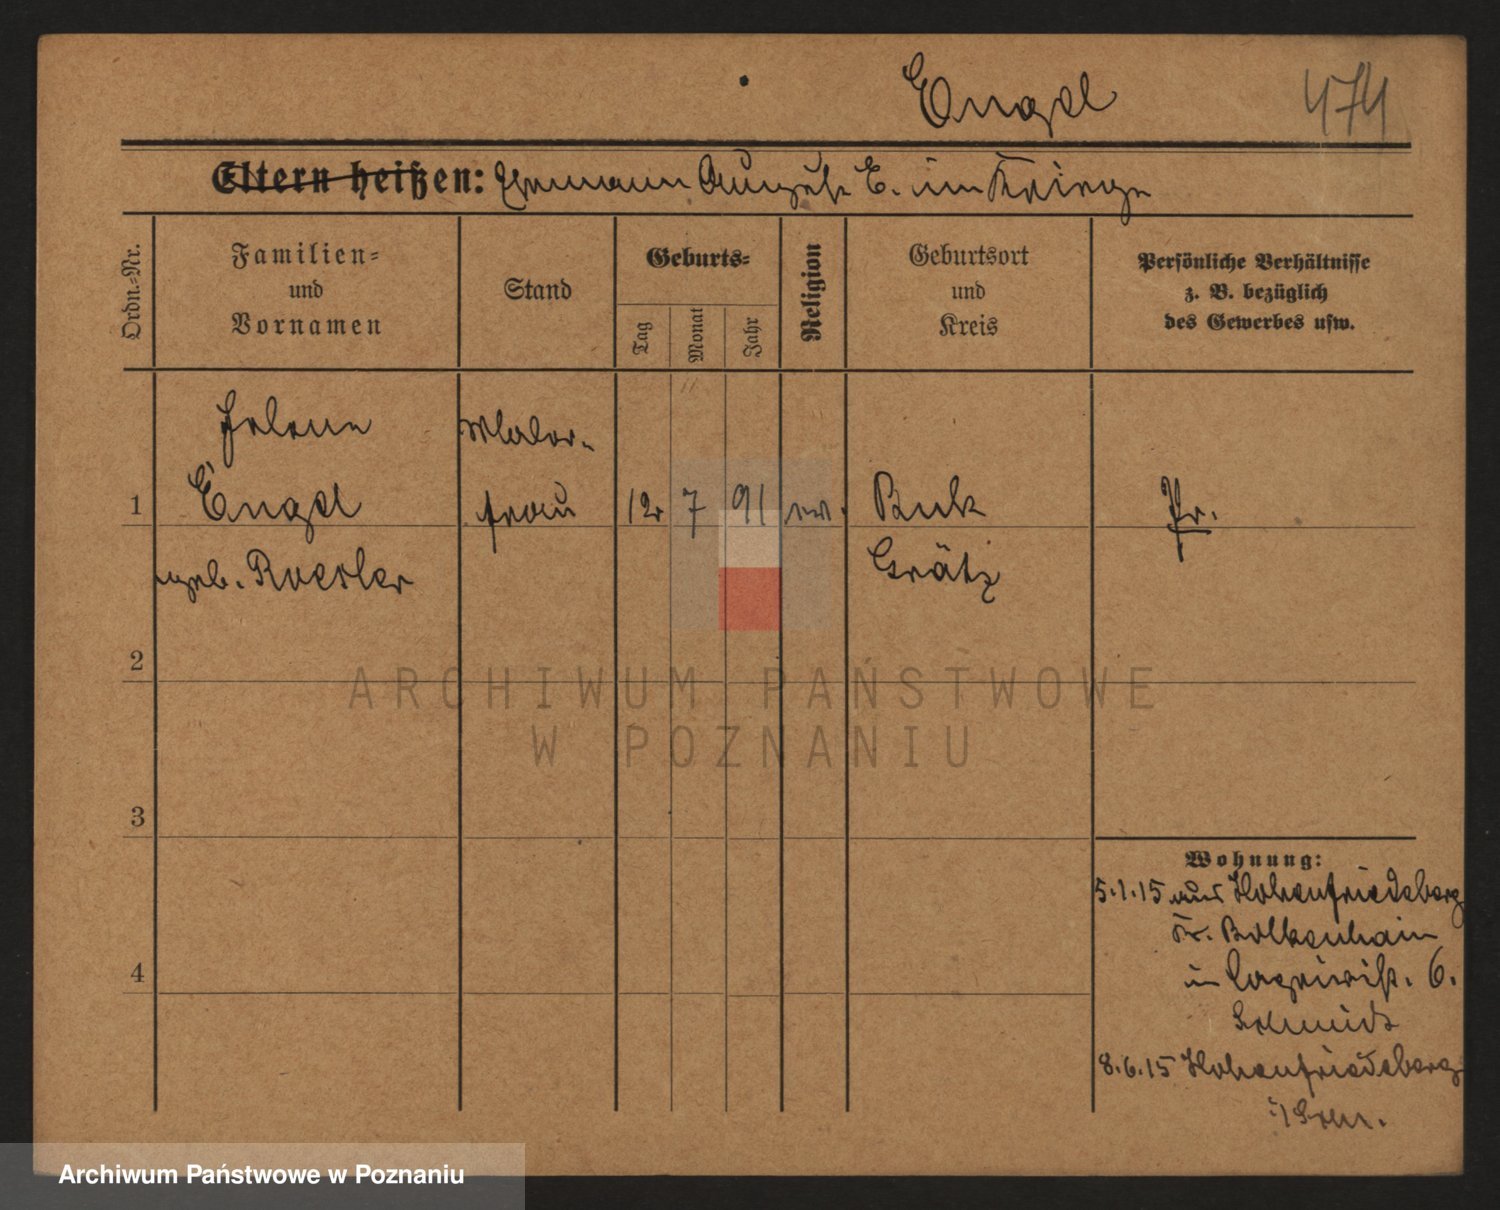 Engel 474
Eltern heißen: Ehemann August E. im Kriege
Ordn.-Nr.
Familien-
und
Vornamen
Stand
Geburts-
Tag
Monat
Jahr
Religion
Geburtsort
und
Kreis
Persönliche Verhältnisse
z. B. bezüglich
des Gewerbes usw.
Helene Maler-
1 Engel frau 12 7 91 ev. Buk Pr.
geb. Roesler Grätz
2
ARCHIWUM PAŃSTWOWE
W POZNANIU
3
Wohnung:
5.1.15 aus Hohenfriedeberg
Kr. Bolkenhain
4
in 6.
Schmidt
8.6.15 Hohenfriedeberg
i/Schl.
Archiwum Państwowe w Poznaniu